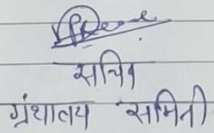 सचिव
ग्रंथालय समिती